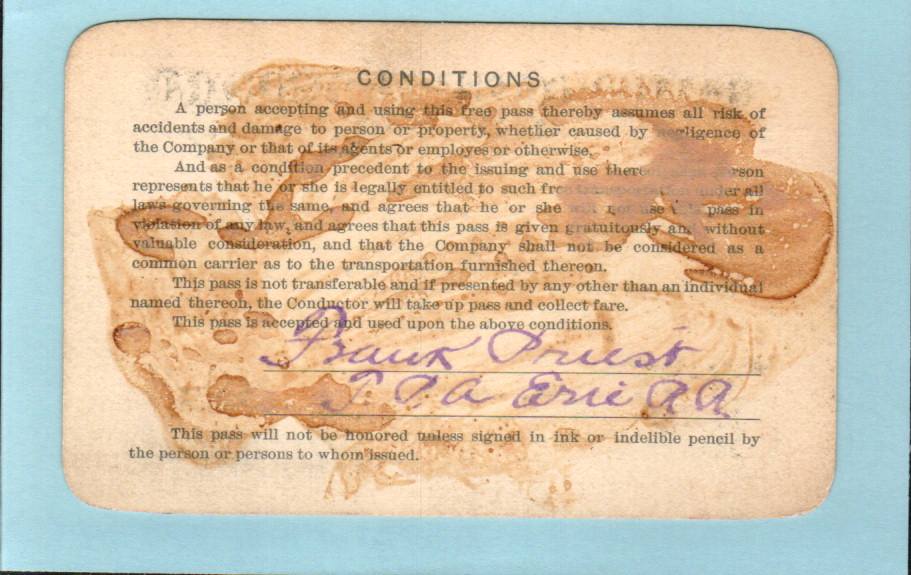 CONDITIONS
A person accepting and using this free pass thereby assumes all risk of
accidents and damage to person or property, whether caused by negligence of
the Company or that of its agents or employes or otherwise.
And as a condition precedent to the issuing and use thereof, such person
represents that he or she is legally entitled to such free transportation under all
laws governing the same, and agrees that he or she will not use this pass in
violation of any law, and agrees that this pass is given gratuitously and without
valuable consideration, and that the Company shall not be considered as a
common carrier as to the transportation furnished thereon.
This pass is not transferable and if presented by any other than an individual
named thereon, the Conductor will take up pass and collect fare.
This pass is accepted and used upon the above conditions.
Frank Priest
Erie
This pass will not be honored unless signed in ink or indelible pencil by
the person or persons to whom issued.